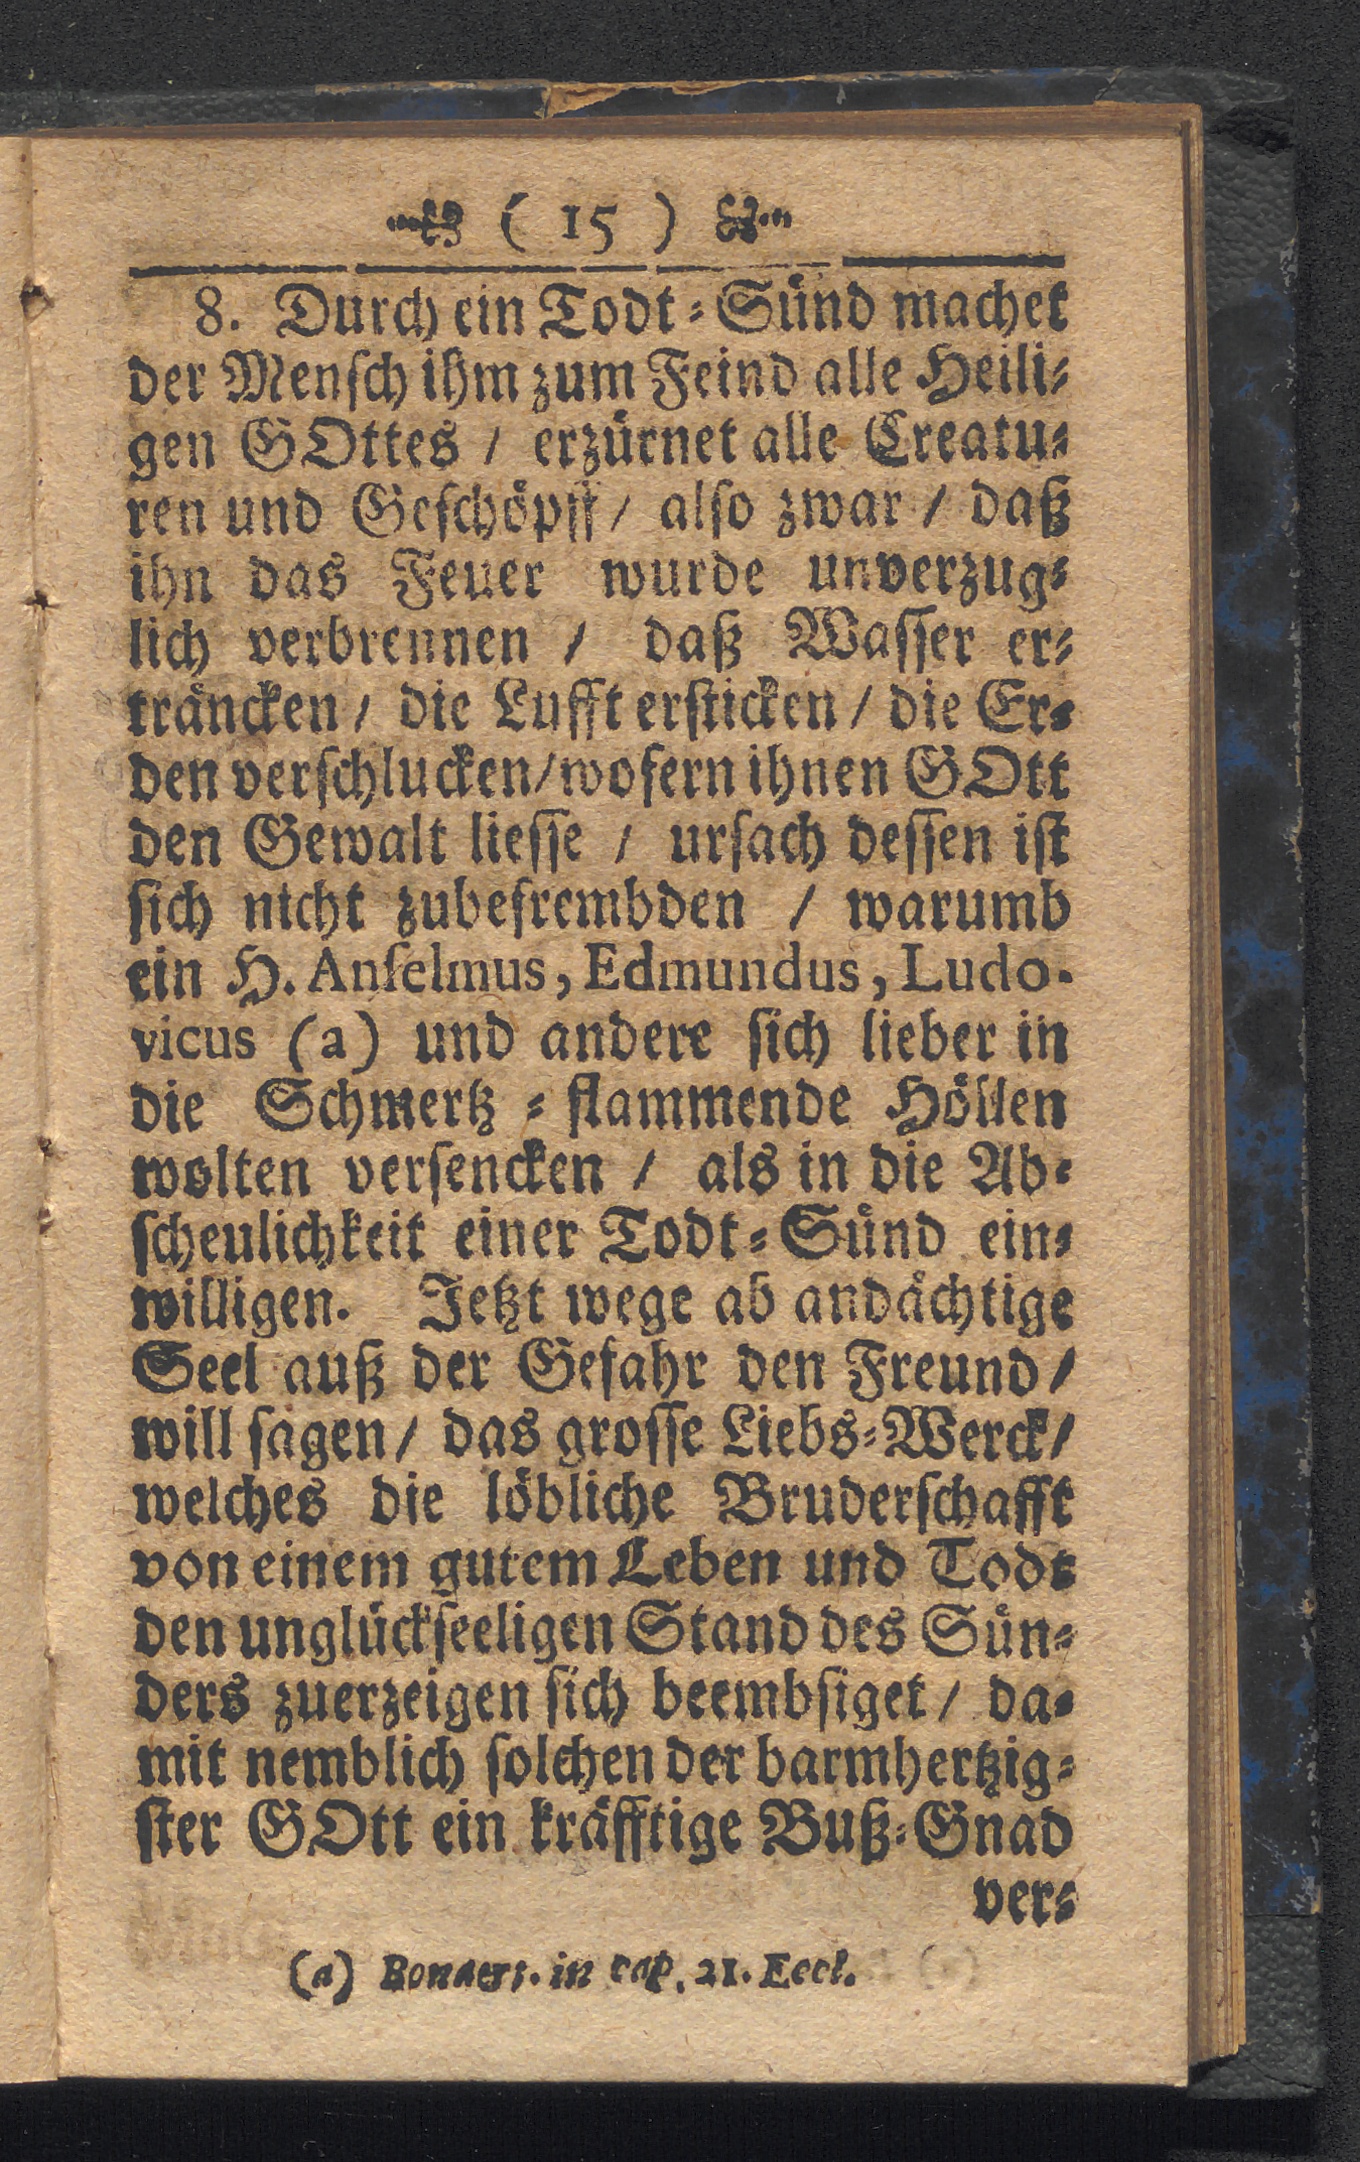 ( 15 )
8. Durch ein Todt-Sünd machet
der Mensch ihm zum Feind alle Heili-
gen GOttes / erzürnet alle Creatu-
ren und Geschöpff / also zwar / daß
ihn das Feuer wurde unverzug-
lich verbrennen / daß Wasser er-
träncken / die Lufft ersticken / die Er-
den verschlucken/wofern ihnen GOtt
den Gewalt liesse / ursach dessen ist
sich nicht zubefrembden / warumb
ein H. Anselmus, Edmundus, Ludo-
vicus (a) und andere sich lieber in
die Schmertz-flammende Höllen
wolten versencken / als in die Ab-
scheulichkeit einer Todt-Sünd ein-
willigen. Jetzt wege ab andächtige
Seel auß der Gefahr den Freund /
will sagen / das grosse Liebs-Werck /
welches die löbliche Bruderschafft
von einem gutem Leben und Todt
den unglückseeligen Stand des Sün-
ders zuerzeigen sich beembsiget / da-
mit nemblich solchen der barmhertzig-
ster GOtt ein kräfftige Buß-Gnad
ver-
(a) in cap. 21. Eccl.